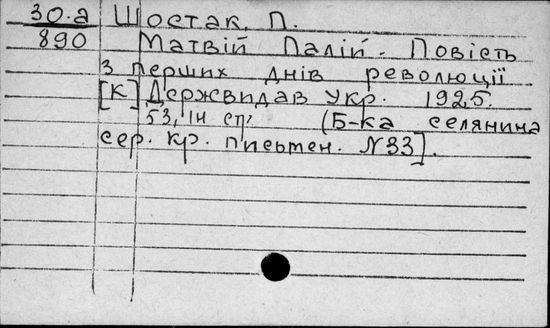 30.а Шостак, П.
890 Матвій Палій. Повість
з перших днів революції
[К] Держвидав Укр. 1925.
53, Iн ст. (Б-ка селянина
сер. кр. письмен. N33].